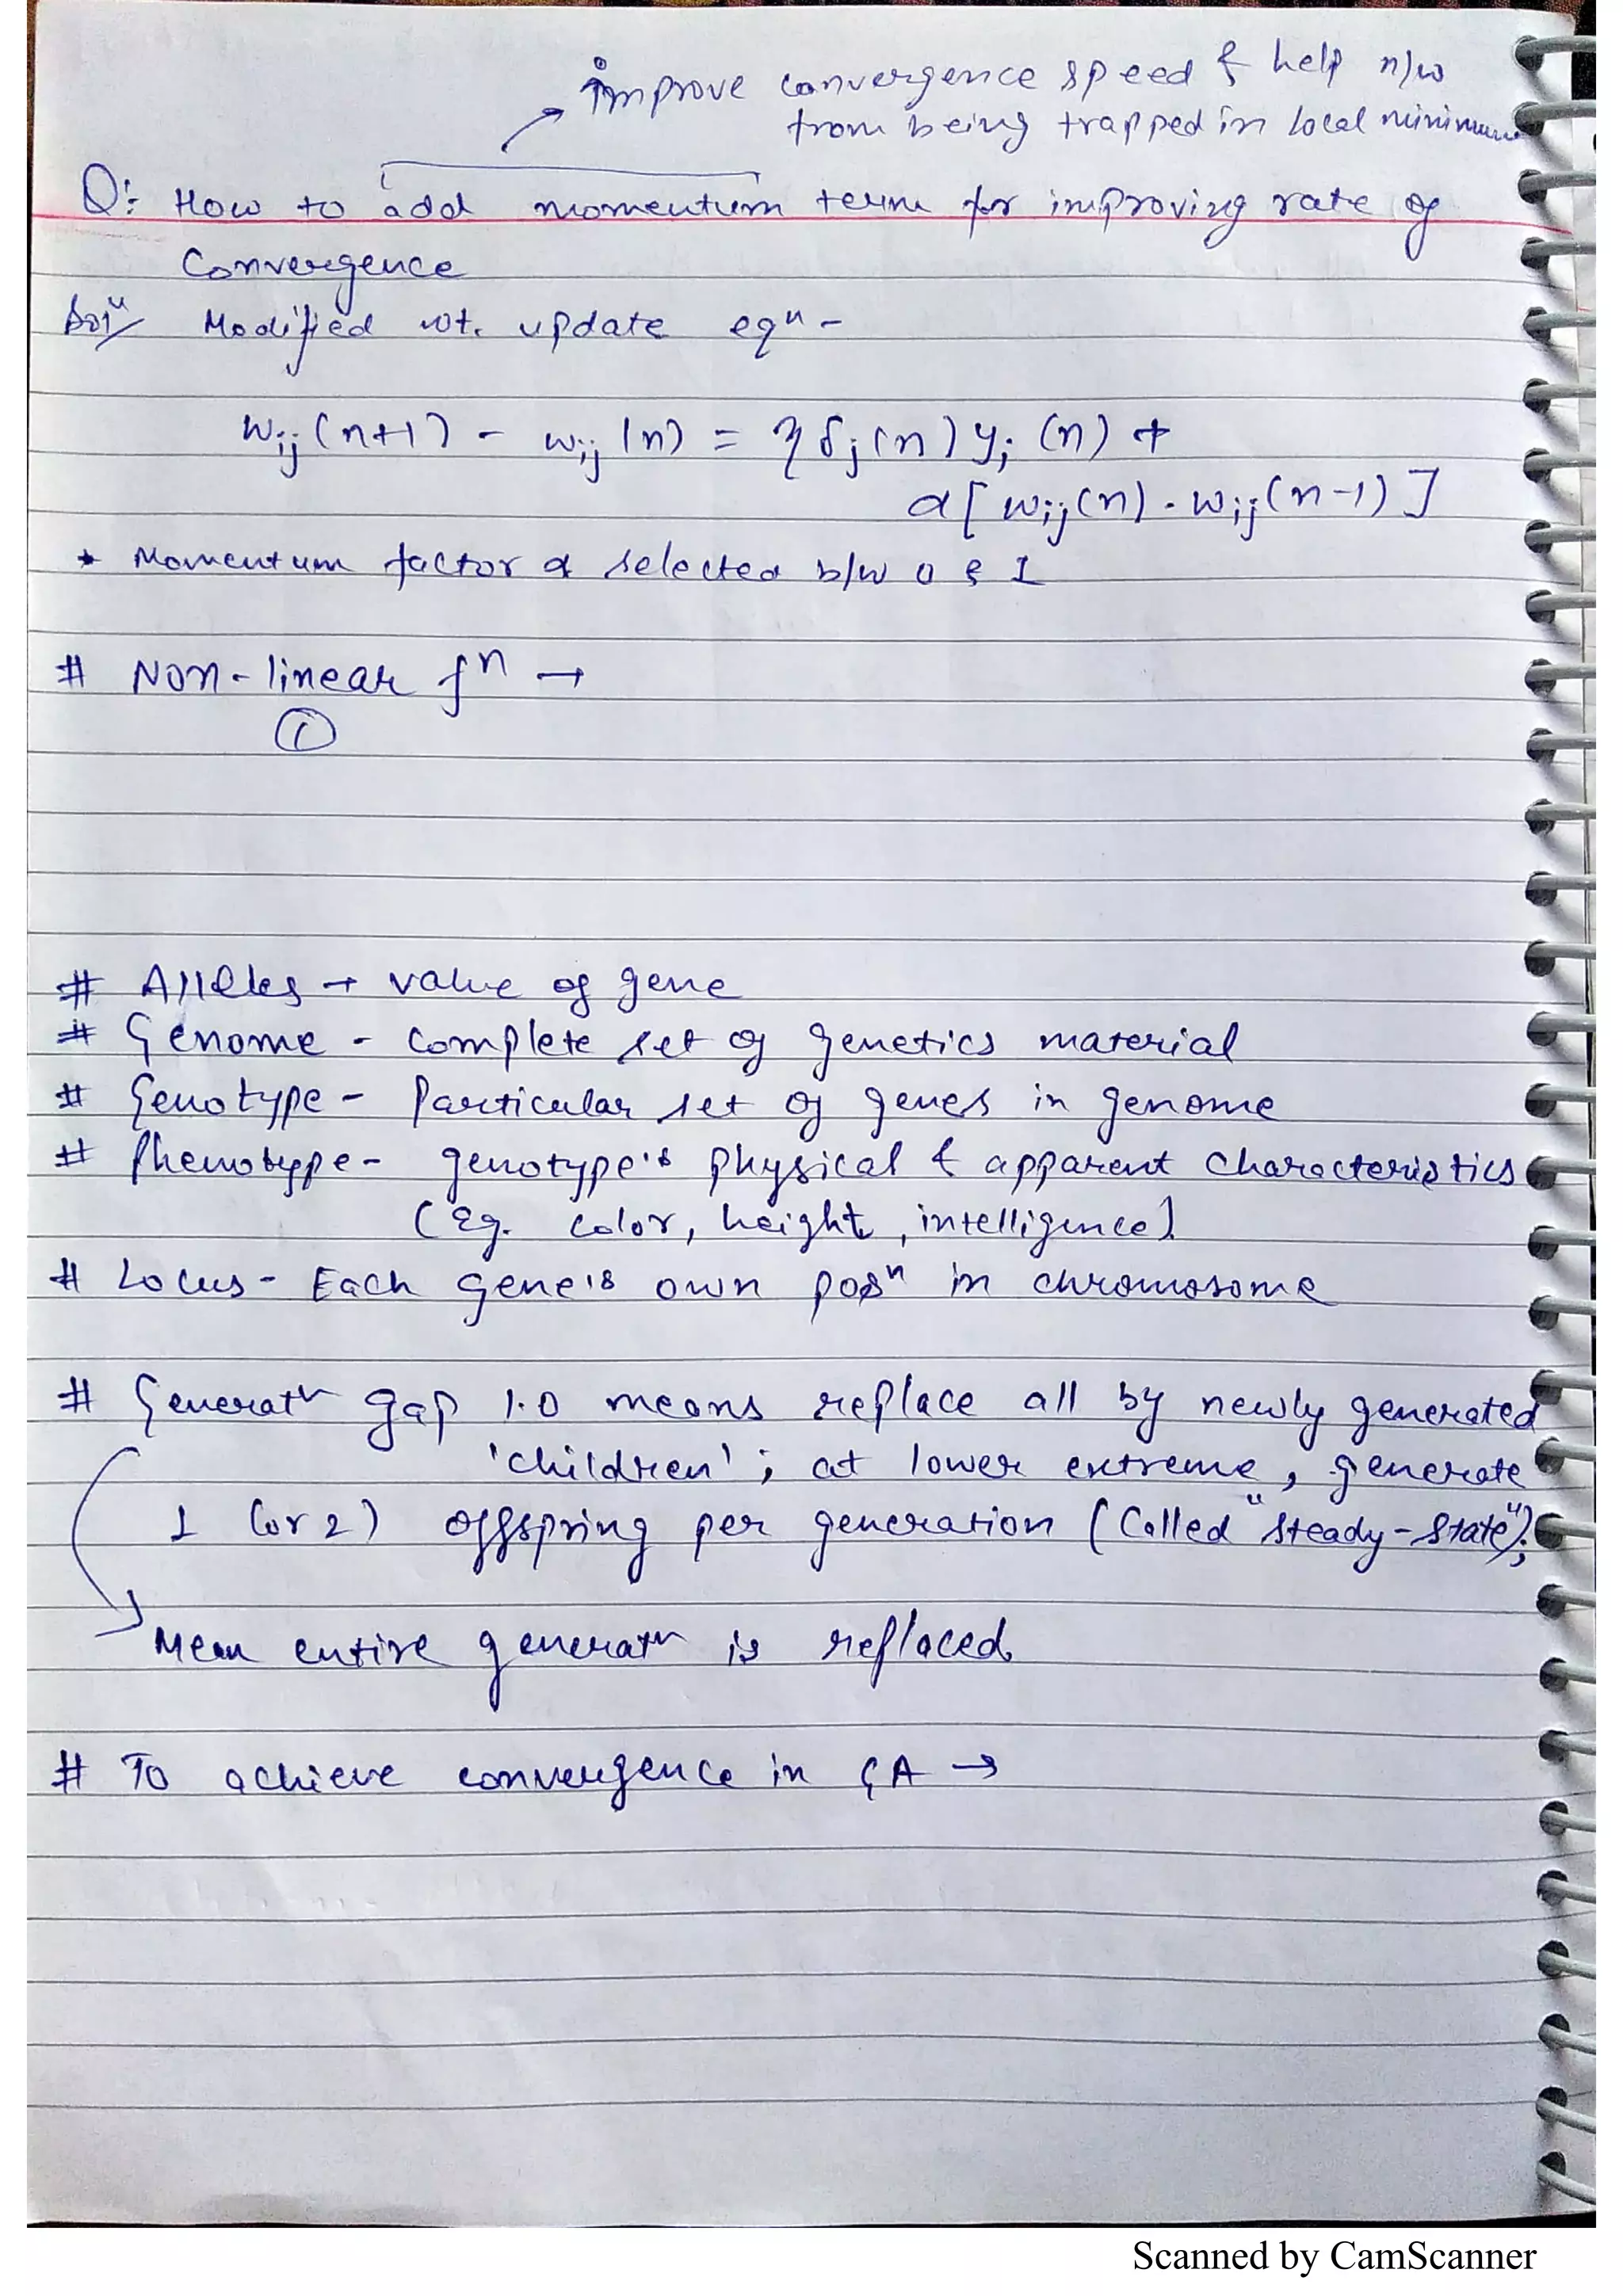 improve convergence speed & help n/w
from being trapped in local minimum
Q: How to add momentum term for improving rate of
Convergence
Solⁿ Modified wt. update eqⁿ -
wij(n+1) - wij(n) = ηδj(n)yi(n) +
α[wij(n) - wij(n-1)]
* Momentum factor α selected b/w 0 & 1
# Non-linear fⁿ →
①
# Alleles → value of gene
# Genome - complete set of genetics material
# Genotype - Particular set of genes in genome
# Phenotype - genotype's physical & apparent characteristics
(Eg. color, height, intelligence)
# Locus - Each gene's own posⁿ in chromosome
# Generatⁿ gap 1.0 means replace all by newly generated
'children'; at lower extreme, generate
1 (or 2) offspring per generation (Called "steady-state");
Mean entire generatⁿ is replaced.
# To achieve convergence in GA →
Scanned by CamScanner